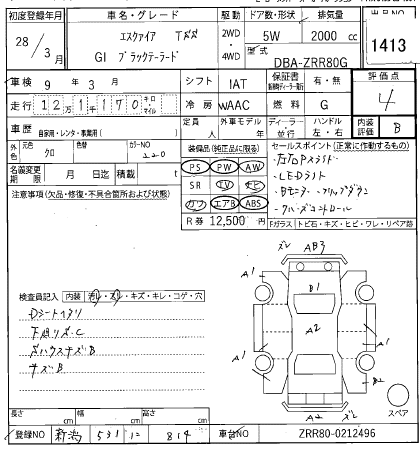 初度登録年月 車名・グレード 駆動 ドア数・形状 排気量 出品NO
28年 3月 エスクァイア 2WD・4WD 5W 2000cc 1413
GI ブラックテーラード 型式 DBA-ZRR80G
車検 9年 3月 シフト IAT 保証書 有・無 評価点 4
走行 12万1千170 キロ マイル 冷房 WAAC 燃料 G 内装評価 B
車歴 自家用・レンタ・事業用( ) 定員 人 外車モデル 年 ディーラー・並行 ハンドル 左・右
外色 元色 クロ 色替 カラーNO 220
装備品(純正品に限る) セールスポイント(正常に作動するもの)
PS PW AW
SR TV ナビ
カワ エアB ABS
LEDライト
クルーズコントロール
名義変更期限 月 日迄 積載 t
R券 12,500円
注意事項(欠品・修復・不具合箇所および状態)
Fガラス トビ石・キズ・ヒビ・ワレ・リペア跡
ズレ AB3
A1 B1 A1
A2
A1 A1
B2
A2 ズレ
スペア
検査員記入 内装 汚レ・スレ・キズ・キレ・コゲ・穴
キズB
長さ cm 幅 cm 高さ cm
登録NO 新潟 531 814 車台NO ZRR80-0212496